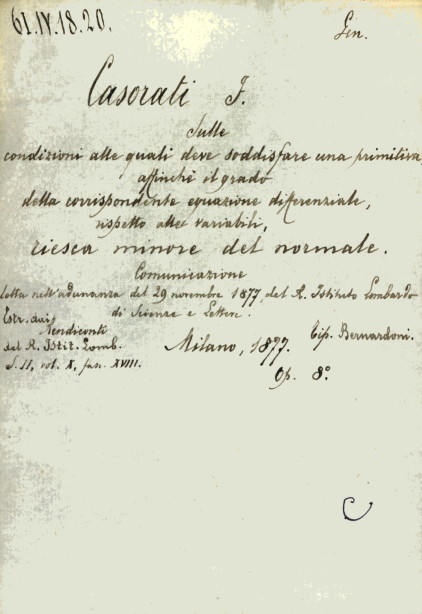 61.IV.18.20.
Gen.
Casorati F.
Sulle
condizioni alle quali deve soddisfare una primitiva,
affinchè il grado
della corrispondente equazione differenziale,
rispetto alle variabili,
riesca minore del normale.
Comunicazione
letta nell'adunanza del 29 novembre 1877, del R. Istituto Lombardo
di Scienze e Lettere.
Estr. dai
Rendiconti
del R. Istit. Lomb.
S. II, vol. X, fasc. XVIII.
Milano, 1877.
Tip. Bernardoni.
Op. 8°.
C